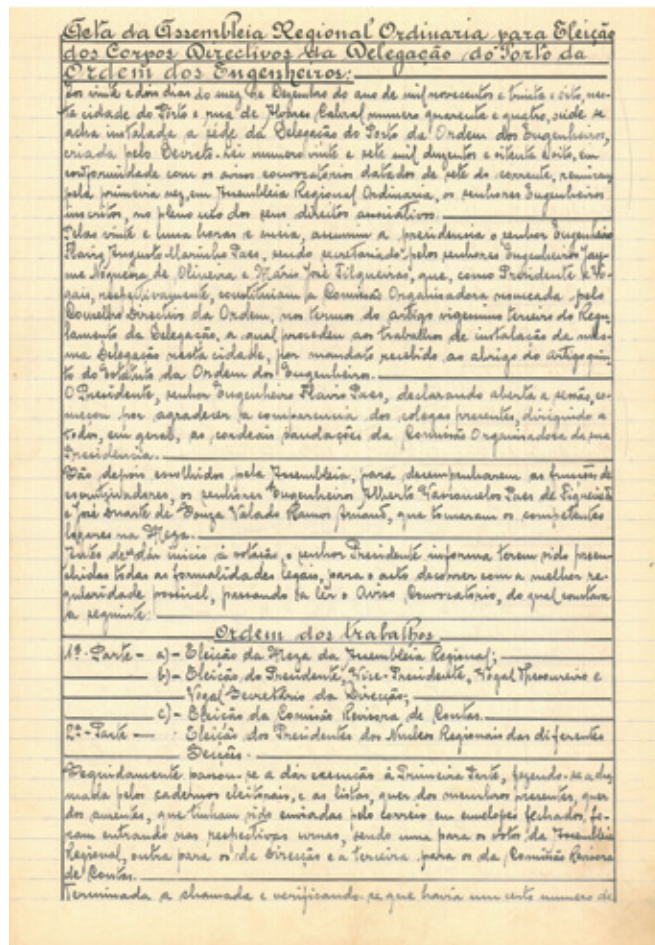 Acta da Assembleia Regional Ordinaria para Eleição
dos Corpos Directivos da Delegação do Porto da
Ordem dos Engenheiros:
Aos vinte e dois dias do mez de Dezembro do ano de mil novecentos e trinta e oito, nes-
ta cidade do Porto e rua de Alvares Cabral numero quarenta e quatro, onde se
acha instalada a séde da Delegação do Porto da Ordem dos Engenheiros,
criada pelo Decreto-Lei numero vinte e sete mil duzentos e oitenta e oito, em
conformidade com os avisos convocatórios datados de sete do corrente, reuniram
pela primeira vez, em Assembleia Regional Ordinaria, os senhores Engenheiros
inscritos, no pleno uso dos seus direitos associativos.
Pelas vinte e uma horas e meia, assumiu a presidencia o senhor Engenheiro
Flavio Augusto Marinho Paes, sendo secretariado pelos senhores Engenheiros Jay-
me Nogueira de Oliveira e Mário José Filgueiras, que, como Presidente e Vo-
gais, respectivamente, constituiam a Comissão Organisadora nomeada pelo
Conselho Directivo da Ordem, nos termos do artigo vigessimo terceiro do Regu-
lamento da Delegação, a qual procedeu aos trabalhos de instalação da mes-
ma Delegação nesta cidade, por mandato recebido ao abrigo do artigo quin-
to do Estatuto da Ordem dos Engenheiros.
O Presidente, senhor Engenheiro Flavio Paes, declarando aberta a sessão, co-
meçou por agradecer a comparencia dos colegas presentes, dirigindo a
todos, em geral, as cordeais saudações da Comissão Organisadora da sua
Presidencia.
São depois escolhidos pela Assembleia, para desempenharem as funções de
escrutinadores, os senhores Engenheiros Alberto Vasconcelos Paes de Figueiredo
e José Duarte de Souza Valado Ramos Arnaut, que tomaram os competentes
lugares na Meza.
Antes de dár inicio á votação, o senhor Presidente informa terem sido preen-
chidas todas as formalidades legais, para o acto decorrer com a melhor re-
gularidade possivel, passando a lêr o Aviso Convocatório, do qual constava
a seguinte:
Ordem dos trabalhos
1ª- Parte - a)- Eleição da Meza da Assembleia Regional;
b)- Eleição do Presidente, Vice-Presidente, Vogal Thesoureiro e
Vogal Secretário da Direcção;
c)- Eleição da Comissão Revisora de Contas.
2ª- Parte - Eleição dos Presidentes dos Nucleos Regionais das diferentes
Secções.
Seguidamente passou-se a dár execução á Primeira Parte, fazendo-se a cha-
mada pelos cadernos eleitorais, e as listas, quer dos membros presentes, quer
dos ausentes, que tinham sido enviadas pelo correio em envelopes fechados, fo-
ram entrando nas respectivas urnas, sendo uma para os votos da Assembleia
Regional, outra para os de Direcção e a terceira para os da Comissão Revisora
de Contas.
Terminada a chamada e verificando-se que havia um certo numero de